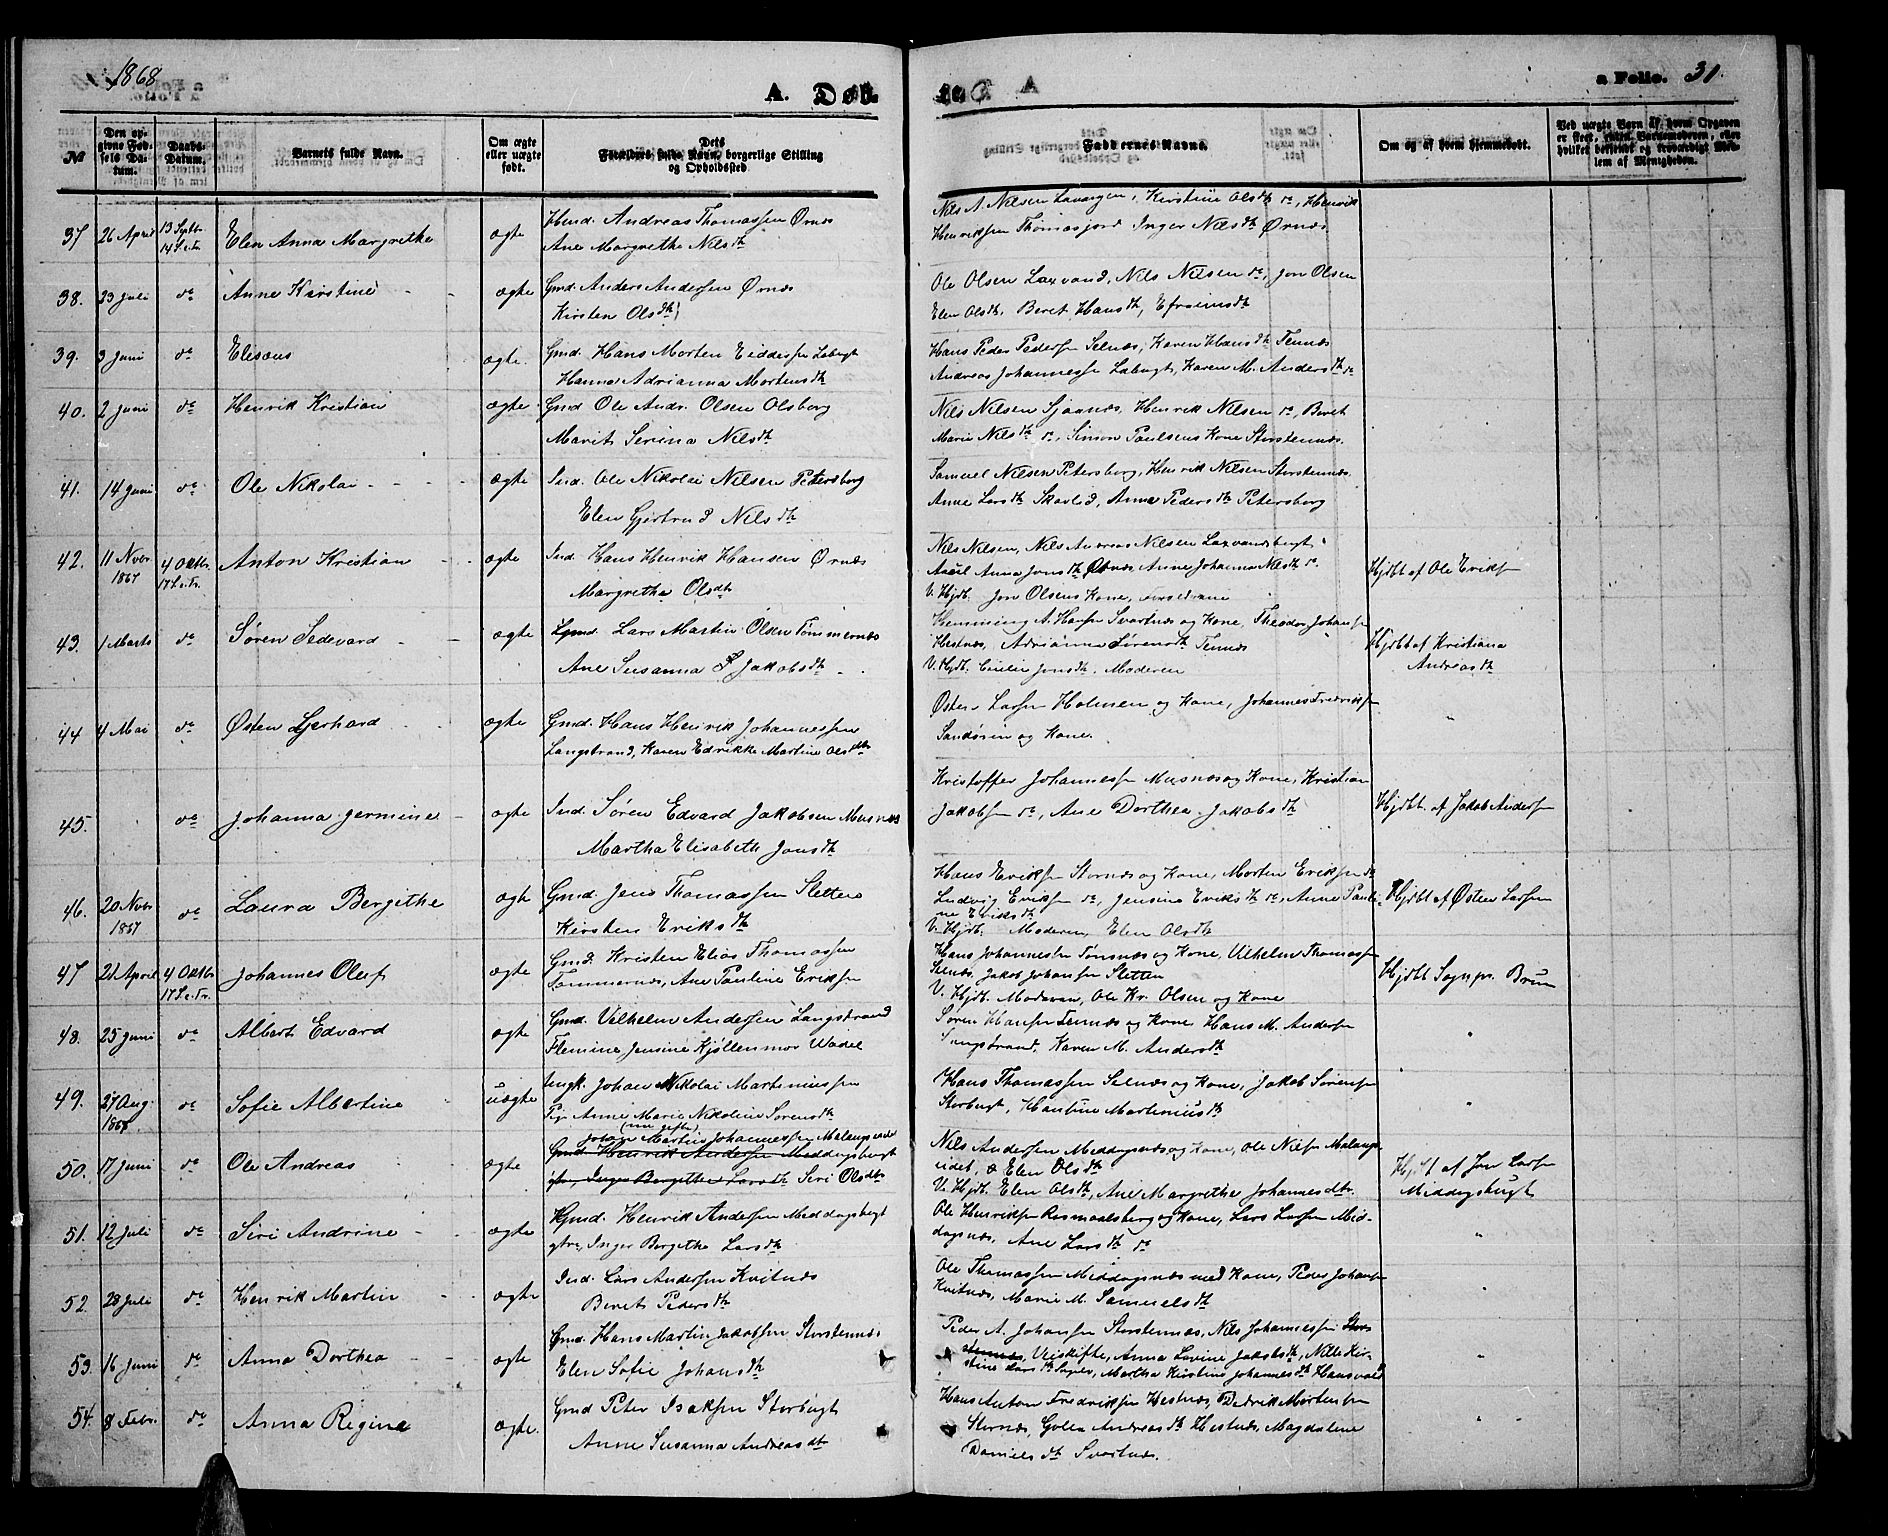 1868
A. Døb
a Folio. 31.
№
Den opgivne Fødsels Datum.
Daabs-Datum.
Barnets fulde Navn.
Om ægte eller uægte født.
Dets Forældres fulde Navn, borgerlige Stilling og Opholdssted
Faddernes Navne.
Om og af hvem hjemmedøbt.
Ved uægte Børn af hvem Opgaven er skeet, enten Barnemoderen, eller hvilket bekjendt og troværdigt Medlem af Menigheden.
37 26 April 13 Septbr 14 S.e.Tr. Elen Anna Margrethe ægte Andreas Thomassen Ørnes
Ane Margrethe Nilsdtr
Nils A. Nilsen Kirstine Olsdtr do, Henrik
Henriksen Thomasjord Inger Nilsdtr Ørnæs
38. 23 Juli do Anne Kirstine ægte Gmd. Anders Andersen Ørnæs
Kirsten Olsdtr
Ole Olsen Laxvand, Nils Nilsen do, Jon Olsen
Elen Olsdtr, Beret Hansdtr, Efraimsdtr
39. 3 Juni do Eliseus ægte. Gmd. Hans Morten
Hanna Adrianna Mortensdtr
Hans Peder Pedersen Selnæs, Karen Hansdtr Tennæs
Andreas Johannessen Karen M. Andersdtr do
40. 2 Juni do Henrik Kristian ægte Gmd Ole Andr. Olsen Olsborg
Marit Serina Nilsdtr
Nils Nilsen Sjaanæs, Henrik Nilsen do, Beret
Marie Nilsdtr do, Simon Paulsens Kone Storstennæs.
41. 14 Juni do Ole Nikolai ægte Ind. Ole Nikolai Nilsen Petersborg
Elen Gjertrud Nilsdtr
Samuel Nilsen Petersborg, Henrik Nilsen Storstennæs.
Anne Larsdtr Skavlid, Anna Pedersdtr Petersborg
42. 11 Novr 1867 4 Oktbr. 17 S.e.Tr. Anton Kristian ægte Ind. Hans Henrik Hansen Ørnæs
Margrethe Olsdtr
Nils Nilsen, Nils Andreas Nilsen Laxvandsbugt
Anna Jonsdtr Ørnæs Anne Johanna Nilsdtr do
V. Hjdb. Jon Olsens Kone,
Hjdbt af Ole Eriksen
43. 1 Marts do Søren Sedevard ægte Gmd. Lars Martin Olsen Tømmernæs
Ane Susanna Jakobsdtr
Hemming A. Hansen Svartnæs og Kone, Theodor Johansen
Hestnæs, Adrianna Sørensdtr Tennæs
V. Hjdb. Jonsdtr, Moderen
Hjdbt af Kristiana
Andreasdtr
44 4 Mai do Østen Gjerhard ægte Gmd. Hans Henrik Johannessen
Langstrand, Karen Edrikke Martine Olsdtr
Østen Larsen Holmen og Kone, Johannes Fredriksen
Sandøren og Kone.
"
45. do Johanna Jermine ægte Ind. Søren Edvard Jakobsen Musnæs
Martha Elisabeth Jonsdtr
Kristoffer Johannessen Musnæs og Kone, Kristian
Jakobsen do, Ane Dorthea Jakobsdtr
Hjdbt. af Jakob Andersen
46. 20 Novr 1867 do Laura Bergithe ægte Gmd. Jens Thomassen Sletten
Kirsten Eriksdtr
Hans Eriksen Stornæs og Kone, Morten Eriksen do
Ludvig Eriksen do, Jensine Eriksdtr do, Anne Pauli-
ne Eriksdtr
V. Hjdb. Moderen, Elen Olsdtr
Hjdbt af Østen Larsen
47. 21 April 4 Oktbr 17 S.e.Tr. Johannes Oluf ægte Gmd. Kristen Elias Thomassen
Tømmernæs, Ane Pauline Eriksen
Hans Johannessen Tønsnæs og Kone, Vilhelm Thomassen
Selnæs, Jakob Johansen Sletten
V. Hjdb. Moderen, Ole Kr. Olsen og Kone
Hjdbt Sognpr. Brun
48. 25 Juni do Albert Edvard ægte Gmd. Vilhelm Andersen Langstrand
Flemine Jensine Kjøllenmor Wadel
Søren Hansen Tennæs og Kone Hans M. Andersen
Langstrand, Karen M. Andersdtr
"
49. 27 Aug. 1867 do Sofie Albertine uægte Ungk. Johan Nikolai Martinussen
Pige Anne Marie Nikoline Sørensdtr
(nu gifte)
Hans Thomassen Selnæs og Kone, Jakob Sørensen
Storbugt, Hansine Martiniusdtr
"
50. 17 Juni do Ole Andreas ægte Johan Martin Johannessen Malangseidet
Gmd. Henrik Andersen Meddagsbugt
Inger Bergithe Larsdtr Siri Olsdtr
Nils Andersen Meddagsnæs og Kone, Ole Nilsen Malangs-
eidet, Elen Olsdtr
V. Hjdb. Elen Olsdtr, Ane Margrethe Johannesdtr.
Hjdbt af Jon Larsen
Middagsbugt
51. 12 Juli do Siri Andrine ægte Gmd. Henrik Andersen Meddagsbugt
Inger Bergithe Larsdtr
Ole Henriksen Rosmaalsberg og Kone, Lars Larsen Mid-
dagsnæs, Ane Larsdtr do
"
52. 28 Juli do Henrik Martin ægte Ind. Lars Andersen Kvitnæs
Beret Pedersdtr
Ole Thomassen Meddagsnæs med Kone, Peder Johansen
Kvitnæs, Marie M. Samuelsdtr
"
53. 16 Juni do Anna Dorthea ægte Gmd. Hans Martin Jakobsen Storstennæs
Elen Sofie Johansdtr
Peder A. Johansen Storstennæs, Nils Johannessen Stor-
stennæs, Veiskifte, Anna Lovine Jakobsdtr, Nille Kir-
stine Larsdtr Martha Kirstine Johannesdtr Hansvold
"
54. 8 Febr. do Anna Regine ægte. Gmd Peter Isaksen Storbugt
Anne Susanna Andreasdtr
Hans Anton Fredriksen Hestnæs, Didrik Mortensen
Stornæs, Golla Andreasdtr Hestnæs, Magdalene
Danielsdtr Svartnæs.
"